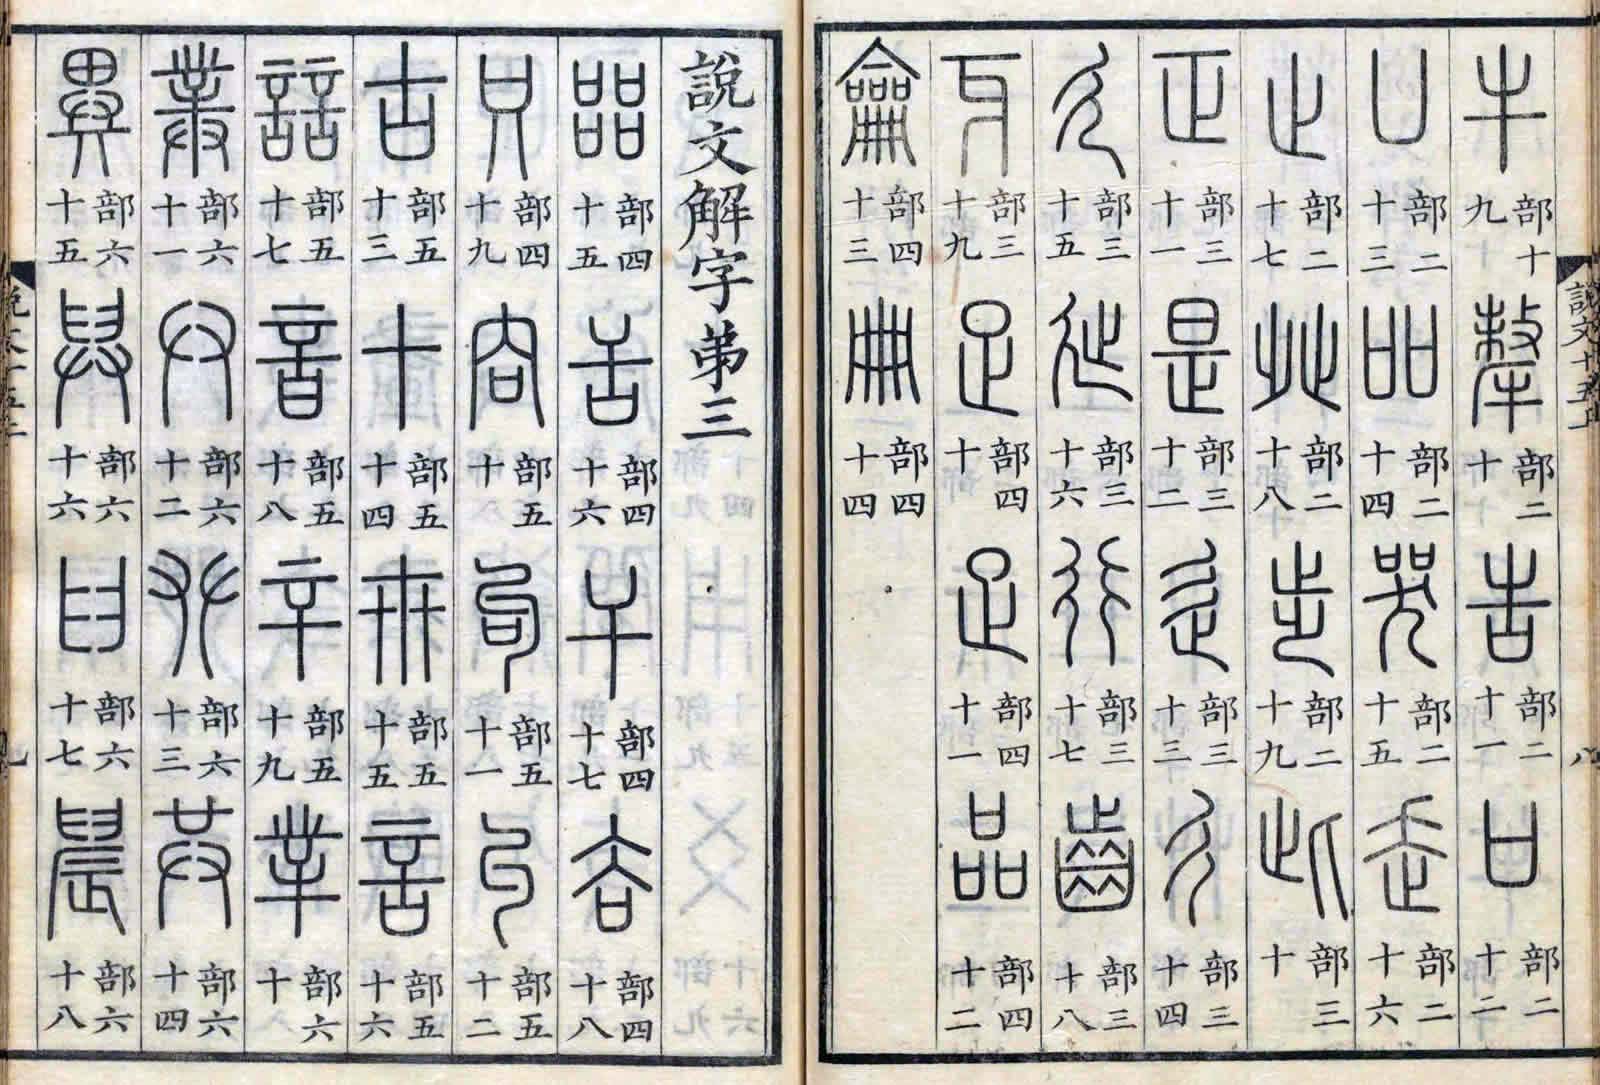 說文十五上
八
牛 部十九 犛 部二十 告 部二十一 口 部二十二
凵 部二十三 吅 部二十四 哭 部二十五 走 部二十六
止 部二十七 癶 部二十八 步 部二十九 此 部三十
正 部三十一 是 部三十二 辵 部三十三 彳 部三十四
廴 部三十五 㢟 部三十六 行 部三十七 齒 部三十八
牙 部三十九 足 部四十 疋 部四十一 品 部四十二
龠 部四十三 冊 部四十四
說文解字弟三
㗊 部四十五 舌 部四十六 干 部四十七 𧮫 部四十八
只 部四十九 㕯 部五十 句 部五十一 丩 部五十二
古 部五十三 十 部五十四 卅 部五十五 言 部五十六
誩 部五十七 音 部五十八 䇂 部五十九 丵 部六十
菐 部六十一 廾 部六十二 𠬜 部六十三 共 部六十四
異 部六十五 舁 部六十六 𦥑 部六十七 晨 部六十八